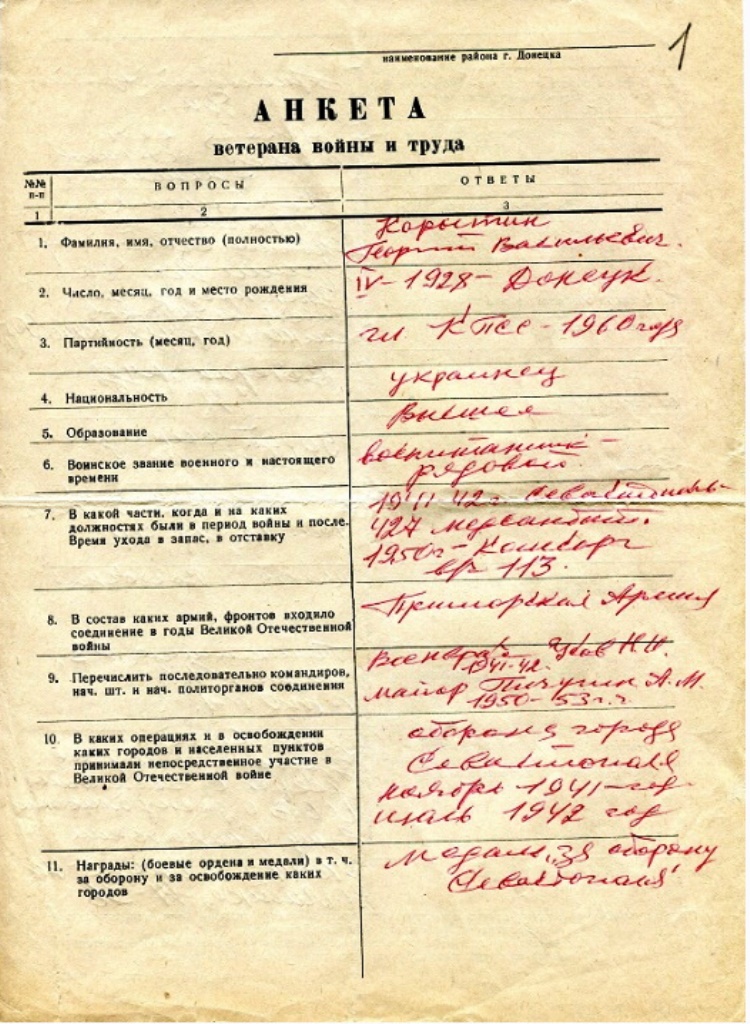 1
наименование района г. Донецка
АНКЕТА
ветерана войны и труда
№№ п-п
ВОПРОСЫ
ОТВЕТЫ
1
2
3
1. Фамилия, имя, отчество (полностью)
Корыткин
Георгий Васильевич.
2. Число, месяц, год и место рождения
IV-1928- Донецк.
3. Партийность (месяц, год)
чл. КПСС - 1960 года
4. Национальность
украинец
5. Образование
Высшее
6. Воинское звание военного и настоящего
времени
воспитанник -
рядовой.
7. В какой части, когда и на каких
должностях были в период войны и после.
Время ухода в запас, в отставку
1941-42г. Севастополь-
427 медсанбат.
1950г-
113.
8. В состав каких армий, фронтов входило
соединение в годы Великой Отечественной
войны
Приморская Армия
9. Перечислить последовательно командиров,
нач. шт. и нач. политорганов соединения
Военврач Н.И.
1941-42.
майор Пичугин А.М.
1950-53г.г.
10. В каких операциях и в освобождении
каких городов и населенных пунктов
принимали непосредственное участие в
Великой Отечественной войне
оборона города
Севастополя
ноябрь 1941-год
июль 1942 год
11. Награды: (боевые ордена и медали) в т. ч.
за оборону и за освобождение каких
городов
Медаль „за оборону
Севастополя"